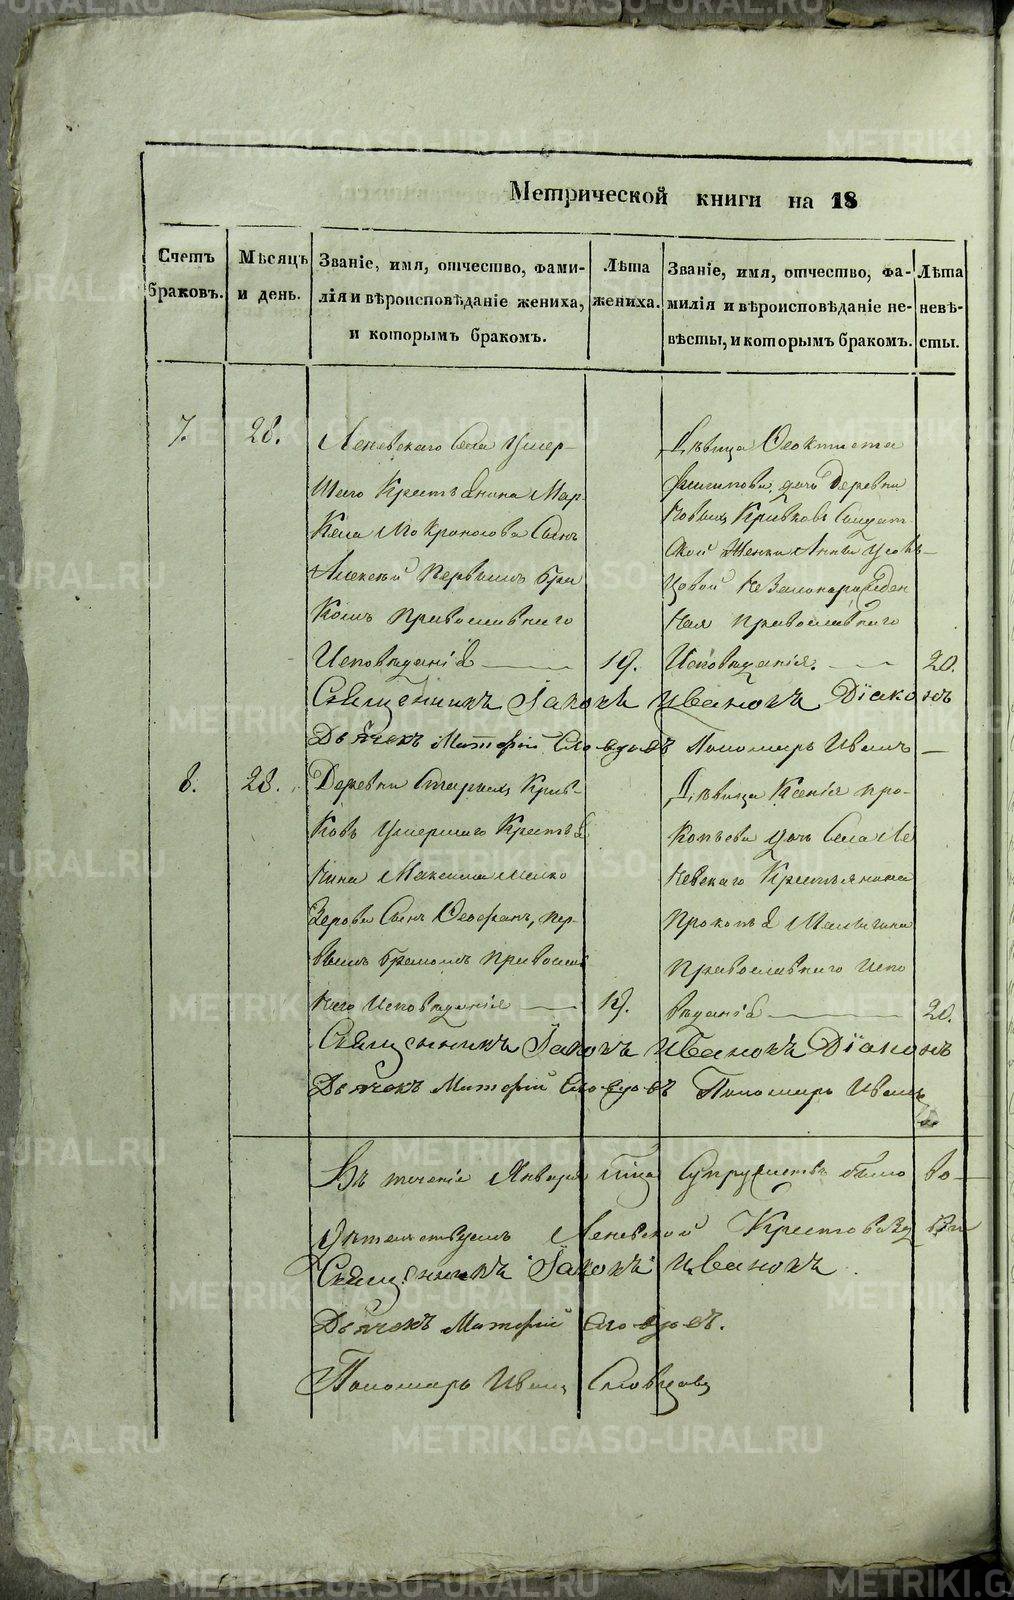 Метрической книги на 18
Счетъ браковъ.
Мѣсяцъ и день.
Званіе, имя, отчество, фами-
лія и вѣроисповѣданіе жениха,
и которымъ бракомъ.
Лѣта
жениха.
Званіе, имя, отчество, фа-
милія и вѣроисповѣданіе не-
вѣсты, и которымъ бракомъ.
Лѣта
невѣ-
сты.
7.
28.
Леневскаго Села Умер-
шаго Крестьянина Мар
кела Мокроносова Сынъ
Алексѣй Первымъ бра
комъ православнаго
Исповѣданія
19.
Дѣвица Ѳеоктиста
Филипова дочь Деревни
Новыхъ Кривковъ Солдат
ской Женки Анны
цовой Незаконорожден
ная православнаго
Исповѣданія.
20.
Священникъ Іаковъ Ивановъ Діаконъ
Дьячекъ Матфій Пономарь Иванъ
8.
28.
Деревни Старыхъ Крив-
ковъ умершаго Крестья
нина Максима Мелко
зерова Сынъ Ѳеофанъ, пер-
вымъ бракомъ православ
наго Исповѣданія
19.
Дѣвица Ксенія про-
копьева дочь Села Ле
невскаго Крестьянина
Прокопья Малыгина
Православнаго испо
вѣданія
20.
Священникъ Іаковъ Ивановъ Діаконъ
Дьячекъ Матфій Пономарь Иванъ
Въ теченіе Января Супружествъ было во-
Леневской
Священникъ Іаковъ Ивановъ
Дьячекъ Матфій
Пономарь Иванъ Словцовъ
METRIKI.GASO-URAL.RU